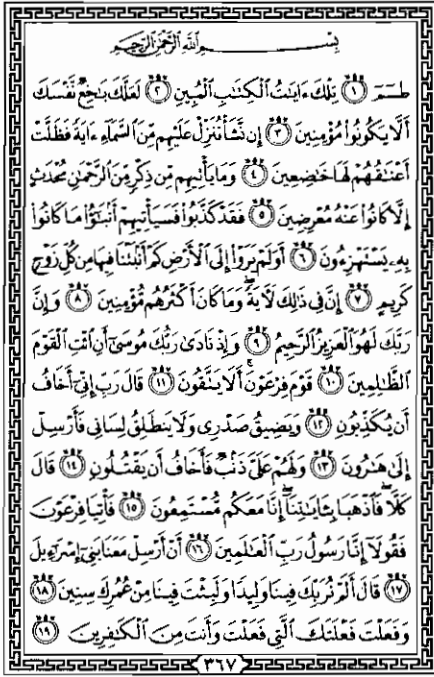 بِسْمِ اللَّهِ الرَّحْمَٰنِ الرَّحِيمِ
طسٓمٓ ١ تِلْكَ ءَايَٰتُ الْكِتَٰبِ الْمُبِينِ ٢ لَعَلَّكَ بَٰخِعٌ نَّفْسَكَ
أَلَّا يَكُونُوا۟ مُؤْمِنِينَ ٣ إِن نَّشَأْ نُنَزِّلْ عَلَيْهِم مِّنَ السَّمَآءِ ءَايَةً فَظَلَّتْ
أَعْنَٰقُهُمْ لَهَا خَٰضِعِينَ ٤ وَمَا يَأْتِيهِم مِّن ذِكْرٍ مِّنَ الرَّحْمَٰنِ مُحْدَثٍ
إِلَّا كَانُوا۟ عَنْهُ مُعْرِضِينَ ٥ فَقَدْ كَذَّبُوا۟ فَسَيَأْتِيهِمْ أَنۢبَٰٓؤُا۟ مَا كَانُوا۟
بِهِۦ يَسْتَهْزِءُونَ ٦ أَوَلَمْ يَرَوْا۟ إِلَى الْأَرْضِ كَمْ أَنۢبَتْنَا فِيهَا مِن كُلِّ زَوْجٍ
كَرِيمٍ ٧ إِنَّ فِى ذَٰلِكَ لَءَايَةً وَمَا كَانَ أَكْثَرُهُم مُّؤْمِنِينَ ٨ وَإِنَّ
رَبَّكَ لَهُوَ الْعَزِيزُ الرَّحِيمُ ٩ وَإِذْ نَادَىٰ رَبُّكَ مُوسَىٰٓ أَنِ ائْتِ الْقَوْمَ
الظَّٰلِمِينَ ١٠ قَوْمَ فِرْعَوْنَ أَلَا يَتَّقُونَ ١١ قَالَ رَبِّ إِنِّىٓ أَخَافُ
أَن يُكَذِّبُونِ ١٢ وَيَضِيقُ صَدْرِى وَلَا يَنطَلِقُ لِسَانِى فَأَرْسِلْ
إِلَىٰ هَٰرُونَ ١٣ وَلَهُمْ عَلَىَّ ذَنۢبٌ فَأَخَافُ أَن يَقْتُلُونِ ١٤ قَالَ
كَلَّا فَاذْهَبَا بِـَٔايَٰتِنَآ إِنَّا مَعَكُم مُّسْتَمِعُونَ ١٥ فَأْتِيَا فِرْعَوْنَ
فَقُولَآ إِنَّا رَسُولُ رَبِّ الْعَٰلَمِينَ ١٦ أَنْ أَرْسِلْ مَعَنَا بَنِىٓ إِسْرَٰٓءِيلَ
١٧ قَالَ أَلَمْ نُرَبِّكَ فِينَا وَلِيدًا وَلَبِثْتَ فِينَا مِنْ عُمُرِكَ سِنِينَ ١٨
وَفَعَلْتَ فَعْلَتَكَ الَّتِى فَعَلْتَ وَأَنتَ مِنَ الْكَٰفِرِينَ ١٩
٣٦٧